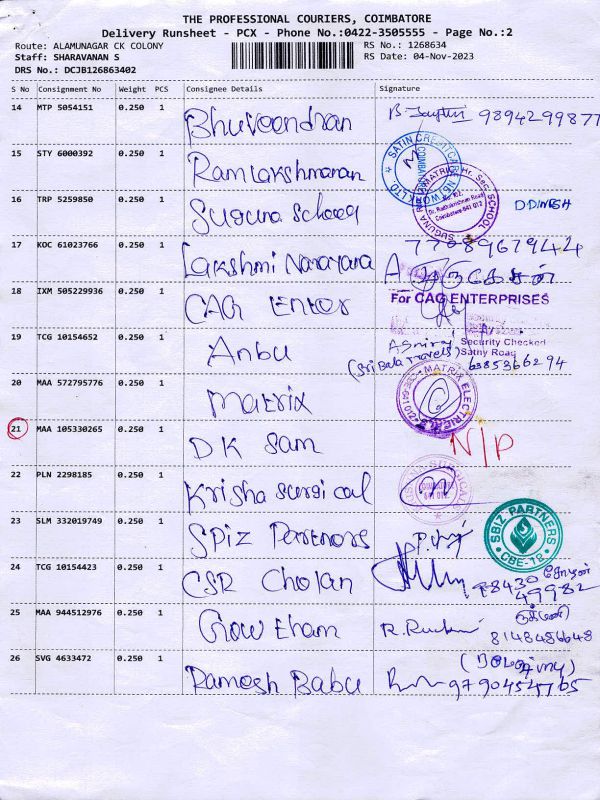 THE PROFESSIONAL COURIERS, COIMBATORE
Delivery Runsheet - PCX - Phone No.:0422-3505555 - Page No.:2
Route: ALAMUNAGAR CK COLONY RS No.: 1268634
Staff: SHARAVANAN S RS Date: 04-Nov-2023
DRS No.: DCJB126863402
S No Consignment No Weight PCS Consignee Details Signature
14 MTP 5054151 0.250 1 Bhuveendran 9894299877
15 STY 6000392 0.250 1 Ramlakshmanan
SATIN CREDITCARE NETWORK LTD.
16 TRP 5259850 0.250 1 Suguna School DDINESH
SUGUNA MATRIC. Hr. Sec. SCHOOL
Dr. Radhakrishnan Road
Coimbatore-641 012
17 KOC 61023766 0.250 1 Lakshmi Narayana
18 IXM 505229936 0.250 1 CAG Enter For CAG ENTERPRISES
19 TCG 10154652 0.250 1 Anbu Security Checked
(Sri Bala Travels) Sathy Road
6385366294
20 MAA 572795776 0.250 1 Matrix MATRIX ELECTRICALS
21 MAA 105330265 0.250 1 DK Sam N/P
22 PLN 2298185 0.250 1 Krisha Surgical
23 SLM 332019749 0.250 1 SPiz Partners SBIZ PARTNERS
CBE-12
24 TCG 10154423 0.250 1 CSR Cholan 98430
49982
25 MAA 944512976 0.250 1 Gowtham 8148486648
26 SVG 4633472 0.250 1 Ramesh Babu